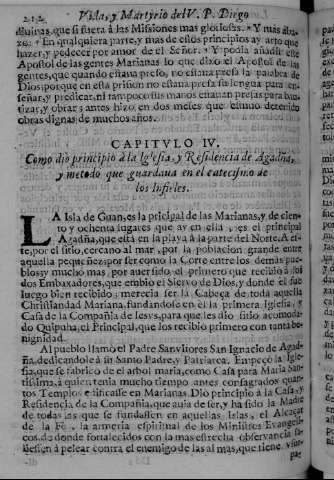 212 Vida, y Martyrio del V. P. Diego
diuinas, que si fuera à las Missiones mas gloriosas. Y mas aba-
xo: En qualquiera parte, y mas de estos principios ay arto que
hazer, y pedecer por amor de el Señor. Y podia añadir este
Apostol de las gentes Marianas lo que dixo el Apostol de las
gentes, que quando estaua preso, no estaua presa la palabra de
Dios, porque en esta prision no estaua presa su lengua para en-
señar, y predicar, ni tampoco sus manos estauan presas para bau-
tizar, y obrar; antes hizo en dos meses que estuuo detenido
obras dignas de muchos años.
CAPITVLO IV.
Como dio principio à la Iglesia, y Residencia de Agadña,
y metodo que guardaua en el catecismo de
los Infieles.
LA Isla de Guan, es la pricipal de las Marianas, y de cien-
to y ochenta lugares que ay en ella, es el principal
Agadña, que està en la playa à la parte del Norte. A es-
te, por el sitio, cercano al mar, por la poblacion grande entre
aquella pequeñez, por ser como la Corte entre los demàs pue-
blos; y mucho mas, por auer sido el primero que recibiò à los
dos Embaxadores, que embio el Siervo de Dios, y donde el fue
luego bien recibido, merecia ser la Cabeça de toda aquella
Christiandad Mariana, fundandole en èl la primera Iglesia, y
Casa de la Compañia de Iesvs, para que les dio sitio acomoda-
do Quipuha, el Principal, que los recibio primero con tanta be-
nignidad.
Al pueblo llamò el Padre Sanvitores San Ignacio de Agad-
ña, dedicandole à su Santo Padre, y Patriarca. Empeço la Igle-
sia, que se fabrico de el arbol maria, como Casa para Maria San-
tissima, à quien tenia mucho tiempo antes consagrados quan-
tos Templos edificasse en Marianas. Dio principio à la Casa, y
Residencia de la Compañia, que auia de ser, y ha sido la Madre
de todas las que se fundassen en aquellas Islas, el Alcaçar
de la Fè, la armeria espiritual de los Ministros Evangeli-
cos, de donde fortalecidos con la mas estrecha observancia sa-
liessen à pelear contra el enemigo de las almas, que tiene
pa-